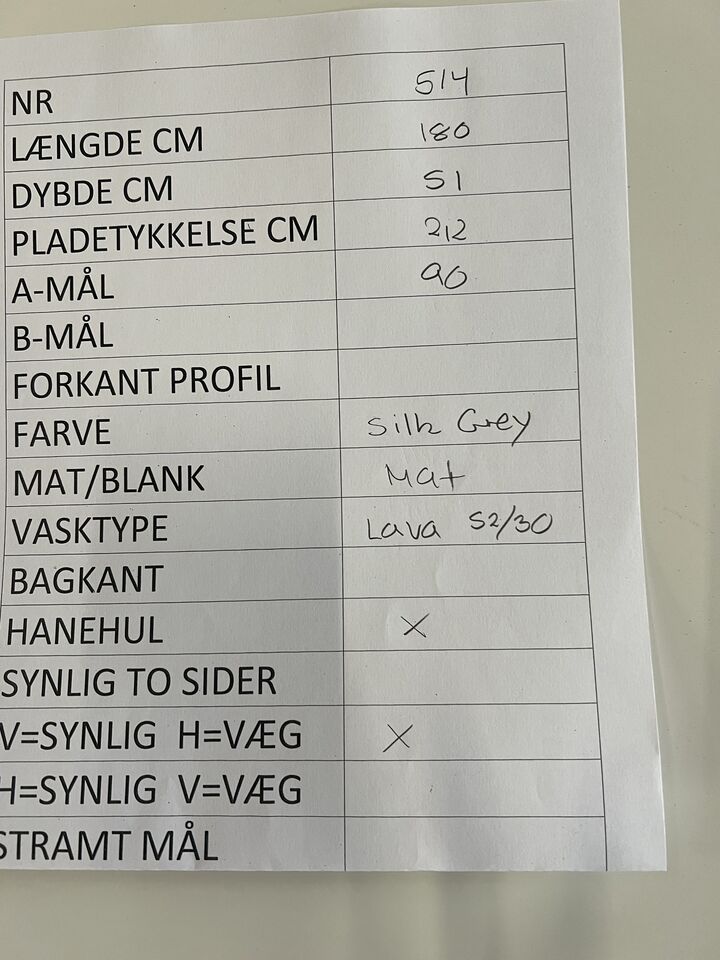 NR 514
LÆNGDE CM 180
DYBDE CM 51
PLADETYKKELSE CM 212
A-MÅL 90
B-MÅL
FORKANT PROFIL
FARVE Silk Grey
MAT/BLANK Mat
VASKTYPE Lava 52/30
BAGKANT
HANEHUL X
SYNLIG TO SIDER
V=SYNLIG H=VÆG X
H=SYNLIG V=VÆG
STRAMT MÅL